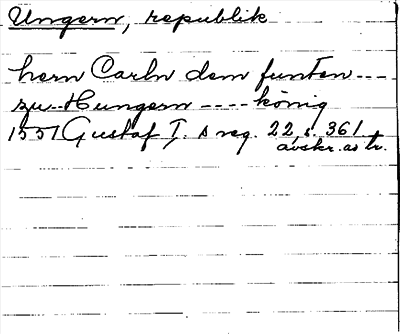 Ungern, republik
hern Carln dem funten ----
zu--Hungern ----könig
1551 Gustaf I. s reg. 22, s. 361
avskr. as tr.